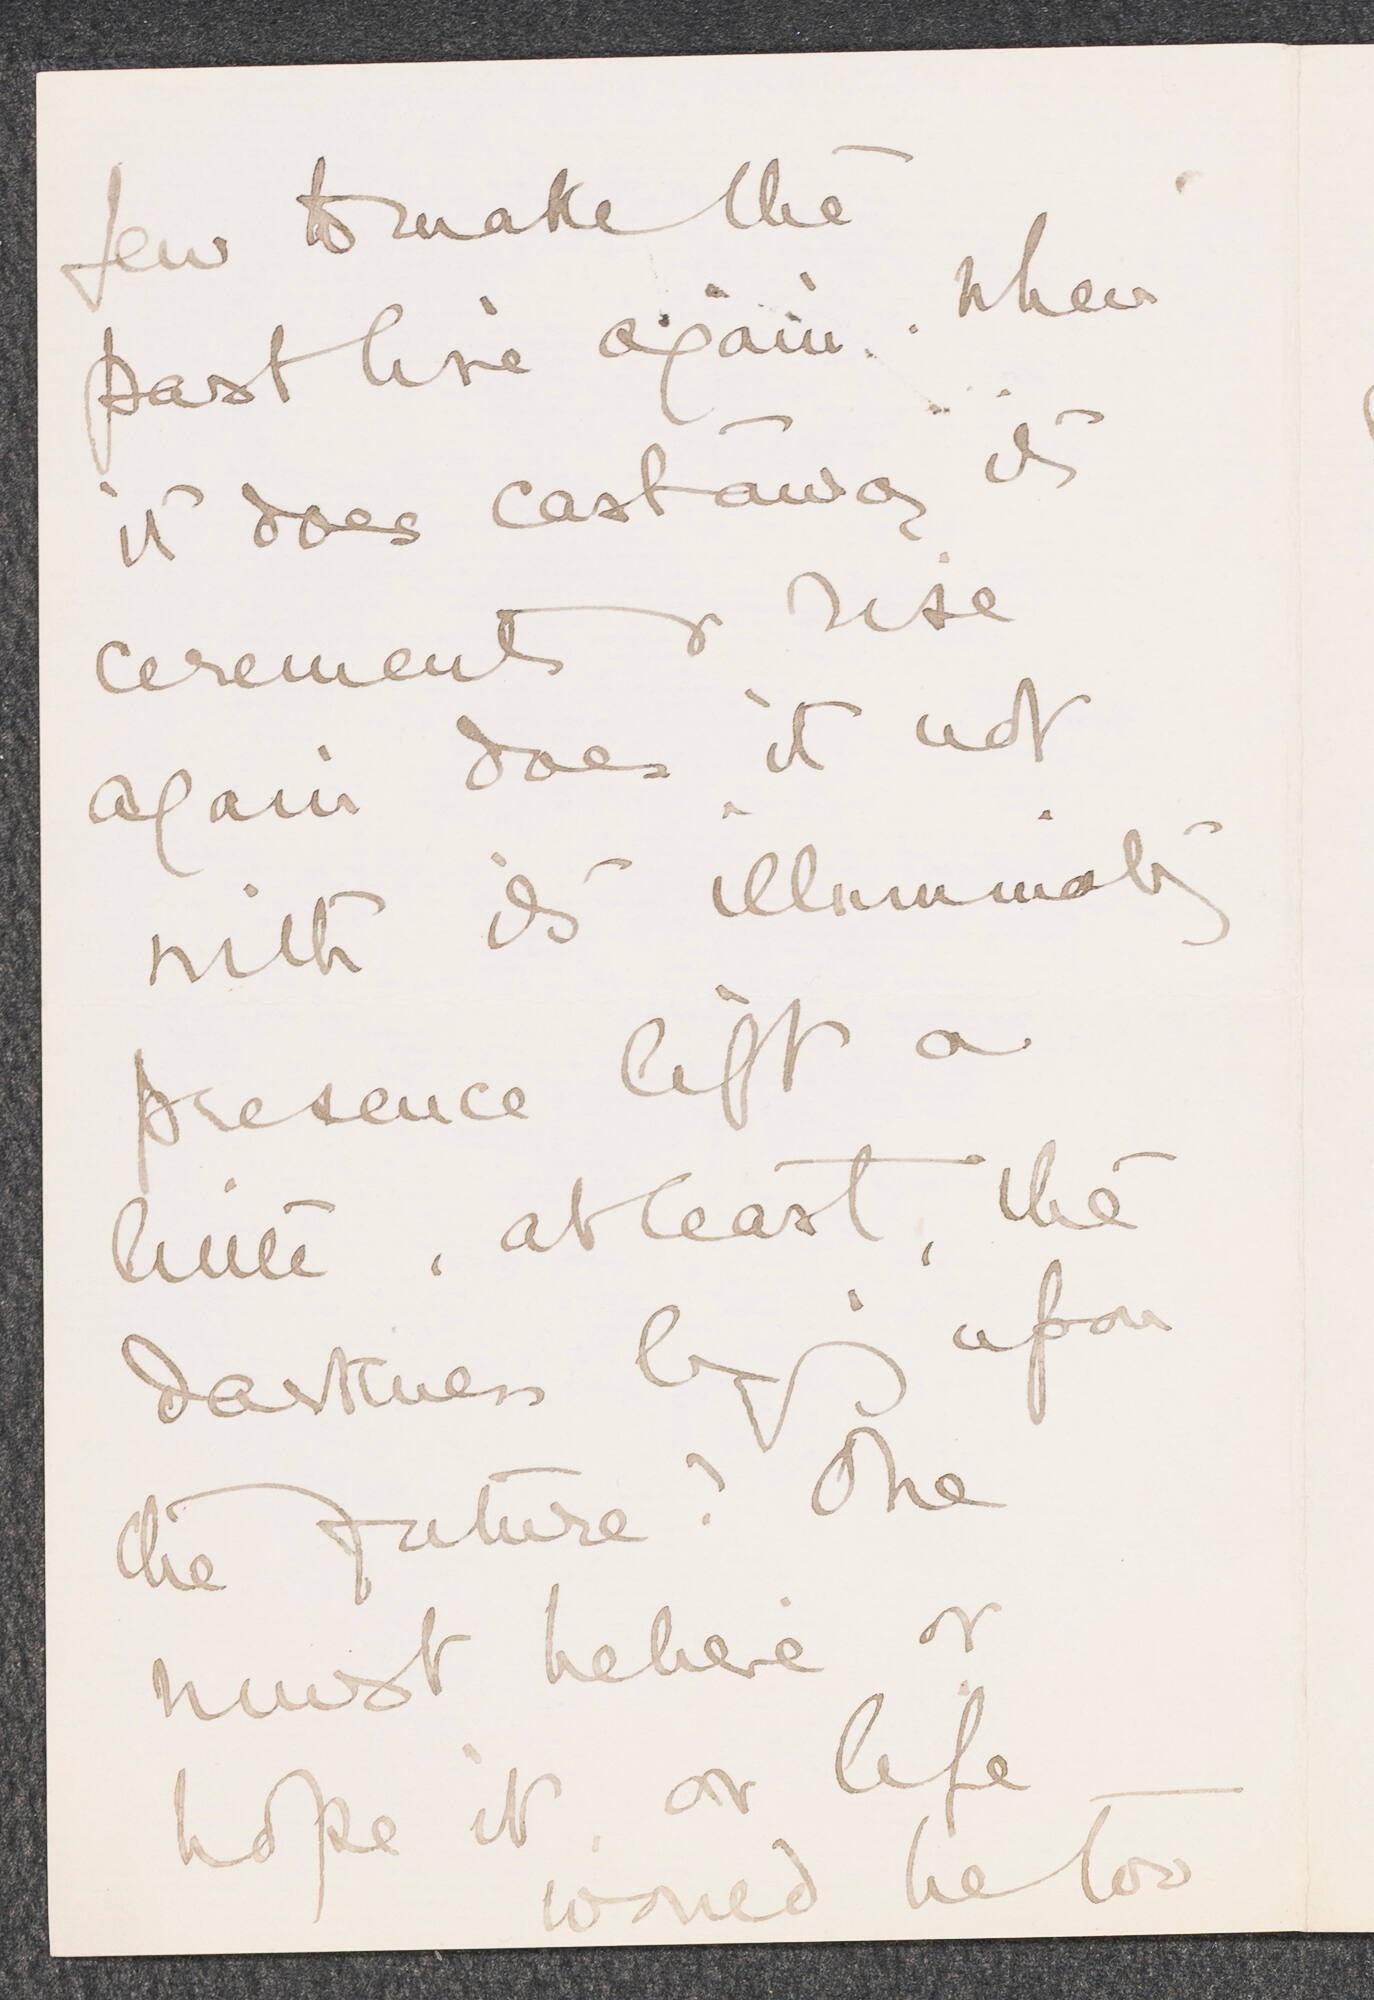 few to make the
past live again. When
it does cast away its
cerements & rise
again does it not
with its illuminating
presence lift a
little, at least, the
darkness lying upon
the future? One
must believe or
hope it, or life
would be too